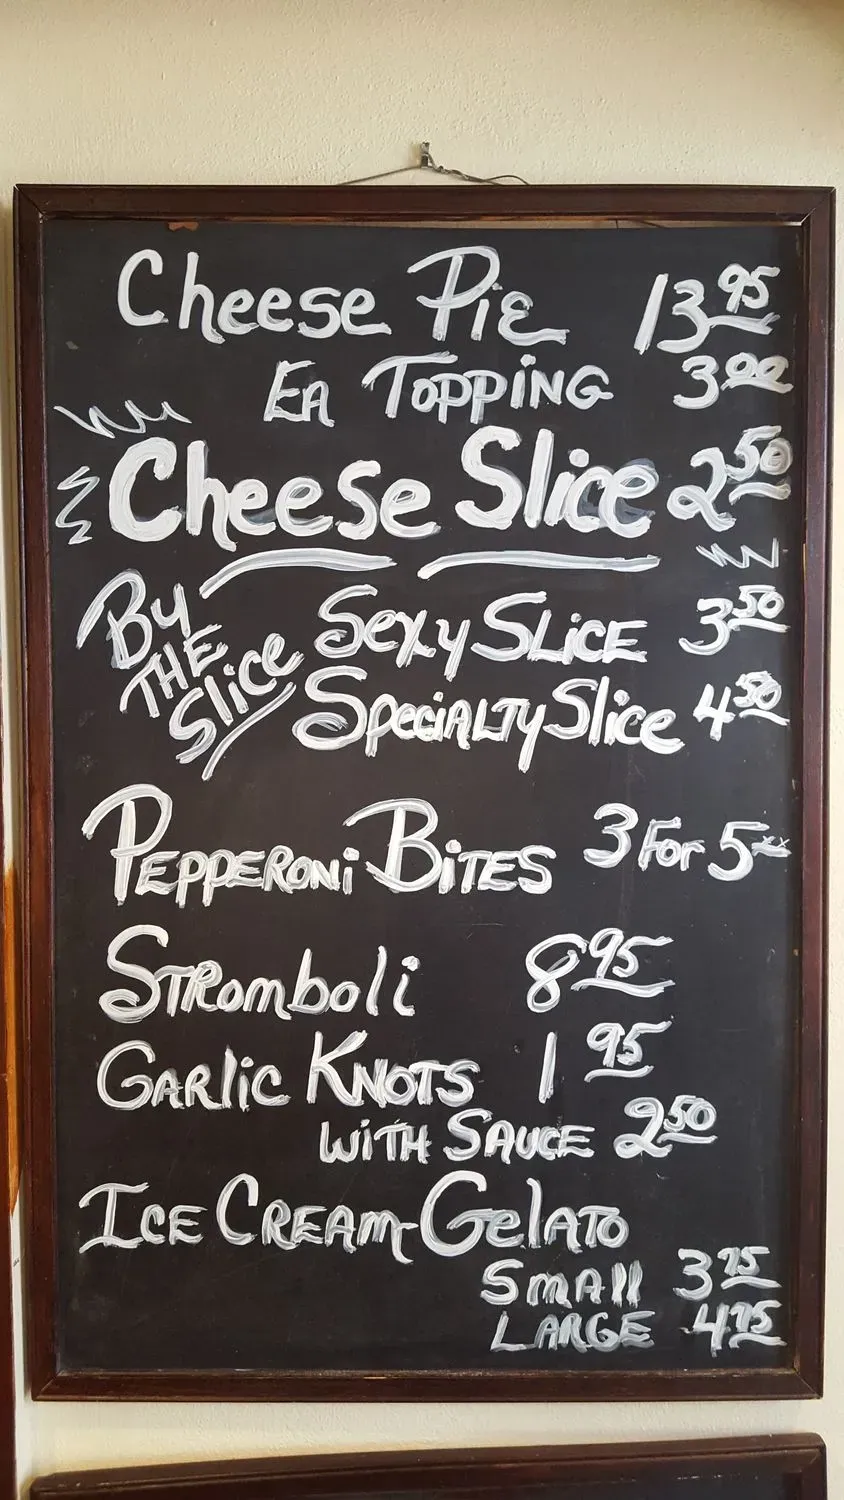 Cheese Pie 13 95
EA TOPPING 3 00
Cheese Slice 2 50
By THE Slice
Sexy SLiCE 3 50
SpeciALTy Slice 4 50
PEPPERONi BiTES 3 For 5 xx
STRomboli 8 95
GARlic KNOTS 1 95
WiTH SAUCE 2 50
ICE CREAM-GelATO
SMAll 3 75
LARGE 4 75